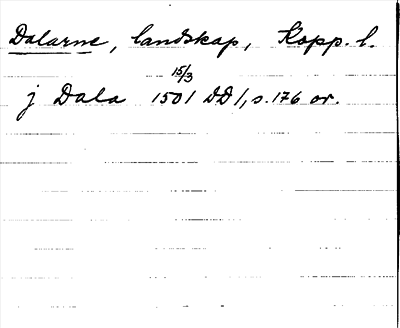 Dalarne, landskap, Kopp. l.
j Dala 1501 15/3 DD 1, s. 176 or.